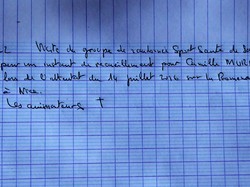 2 Visite du groupe de randonnée Sport Santé de
pour un instant de recueillement pour Camille MUR
lors de l'attentat du 14 juillet 2016 sur la Promena
à Nice.
Les animateurs †